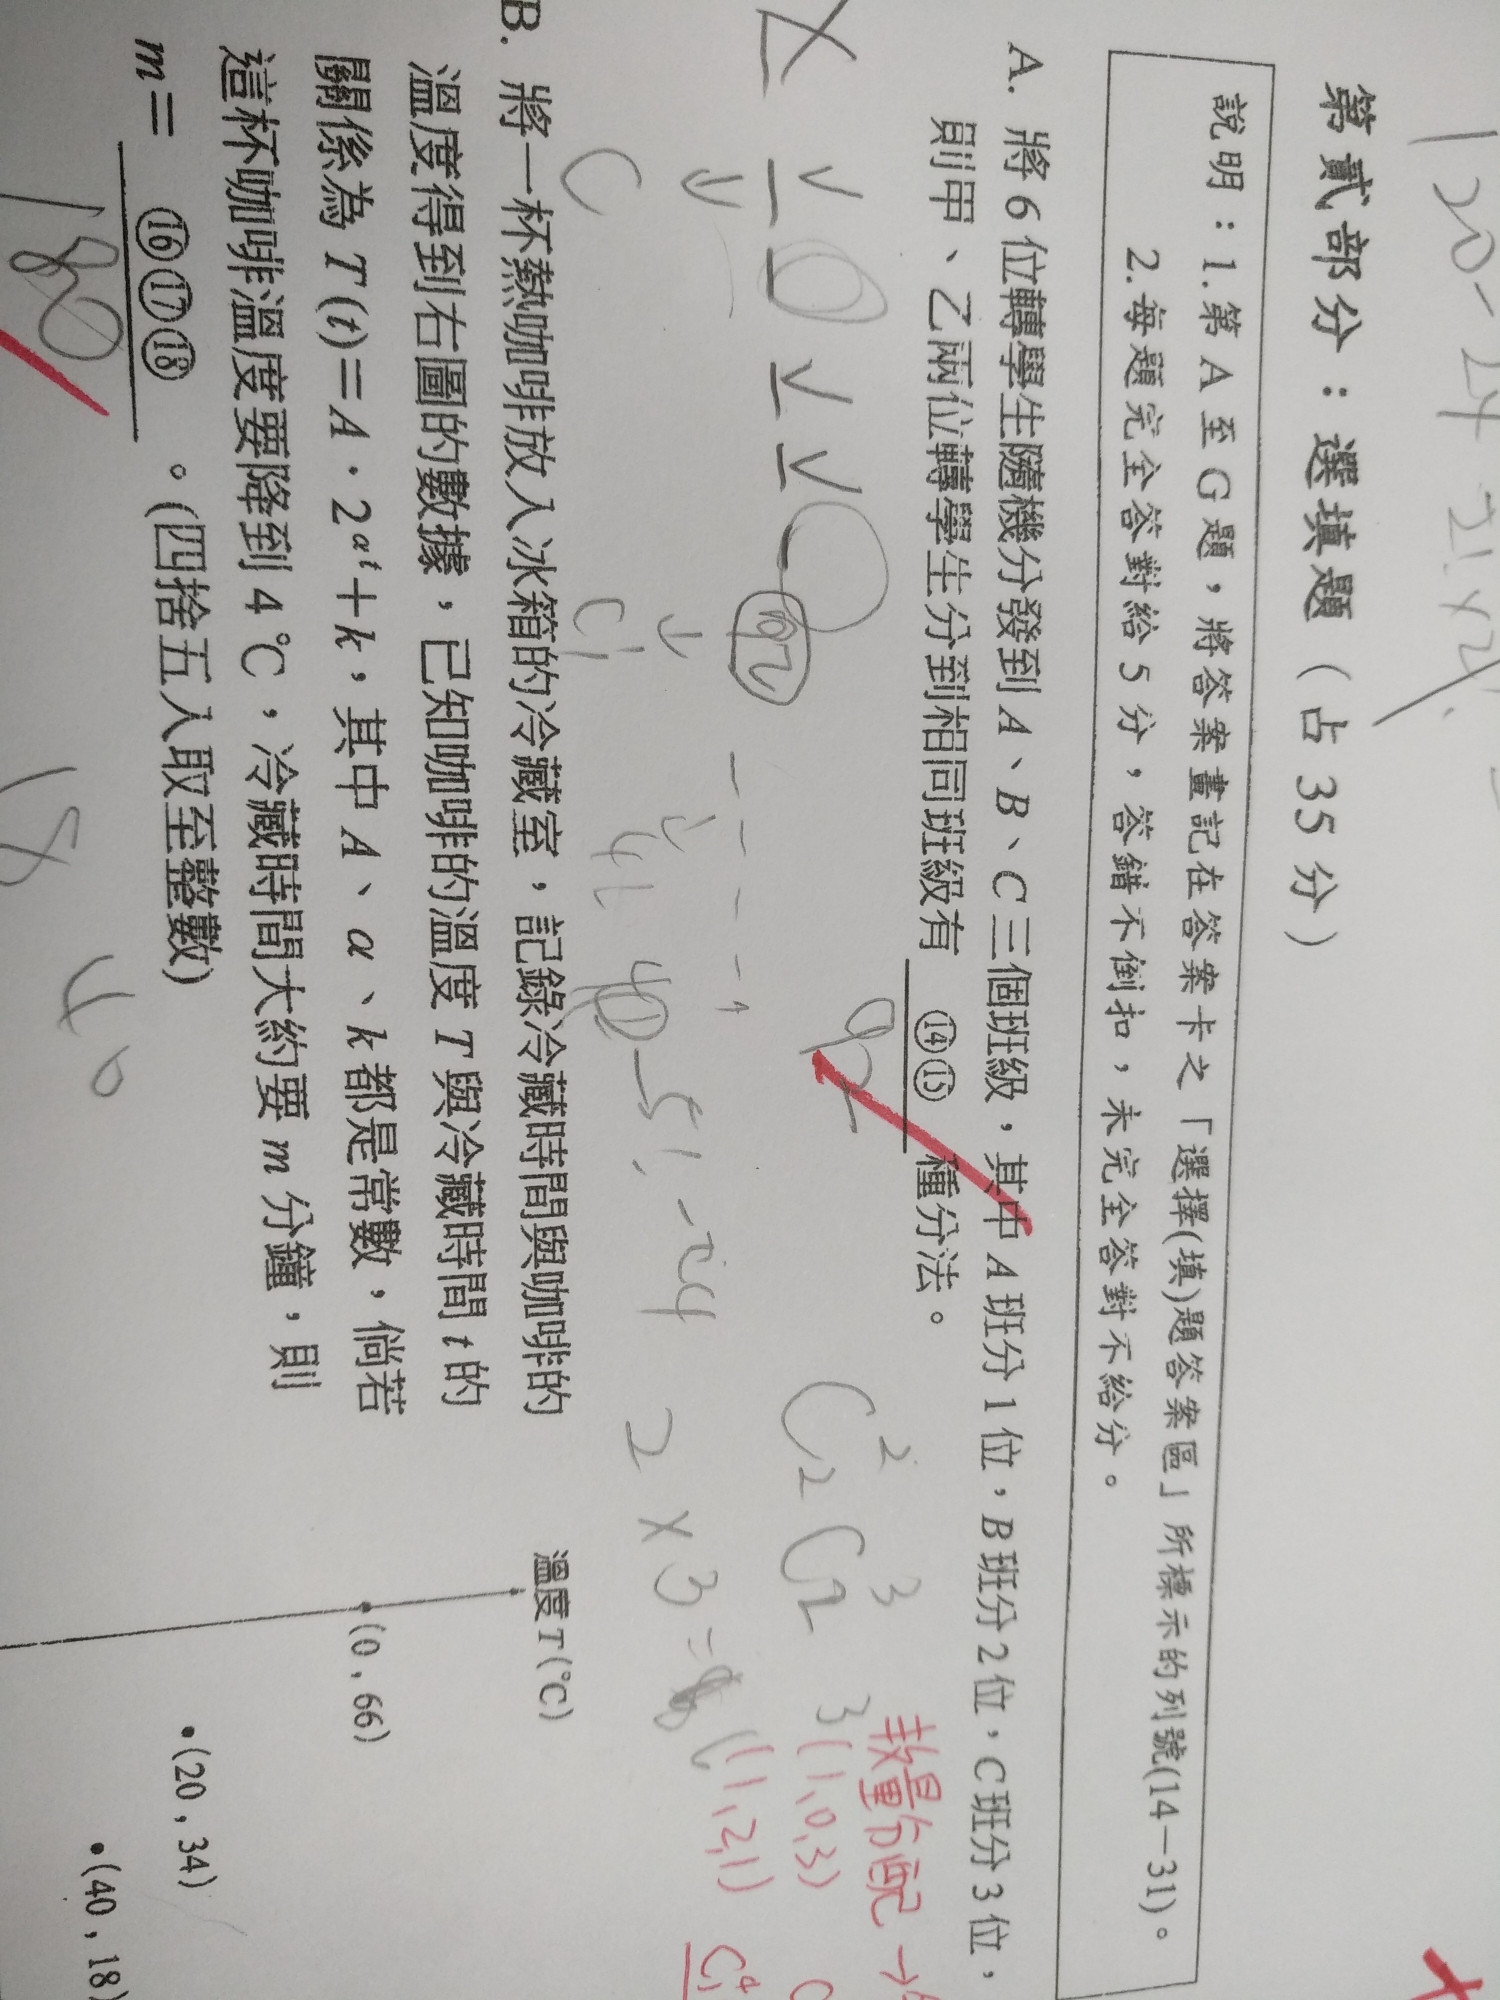 120-24-21×2
第貳部分：選填題（占35分）
說明：1.第A至G題，將答案畫記在答案卡之「選擇(填)題答案區」所標示的列號(14－31)。
2.每題完全答對給5分，答錯不倒扣，未完全答對不給分。
A. 將6位轉學生隨機分發到A、B、C三個班級，其中A班分1位，B班分2位，C班分3位，
則甲、乙兩位轉學生分到相同班級有 ⑭⑮ 種分法。
92
數量分配
3(1,0,3)
(1,2,1)
92
2×3=6
B. 將一杯熱咖啡放入冰箱的冷藏室，記錄冷藏時間與咖啡的
溫度得到右圖的數據，已知咖啡的溫度T與冷藏時間t的
關係為T(t)=A·2^{αt}+k，其中A、α、k都是常數，倘若
這杯咖啡溫度要降到4℃，冷藏時間大約要m分鐘，則
m= ⑯⑰⑱ 。(四捨五入取至整數)
180
18
溫度T(℃)
(0,66)
(20,34)
(40,18)